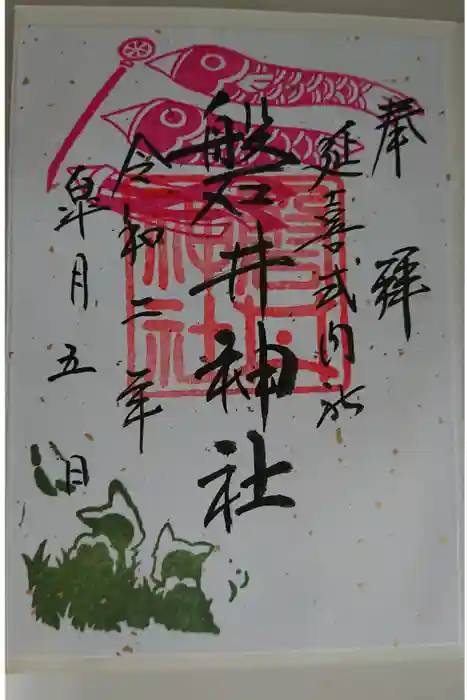 奉拝
延喜式内社
磐井神社
令和二年
皐月五日